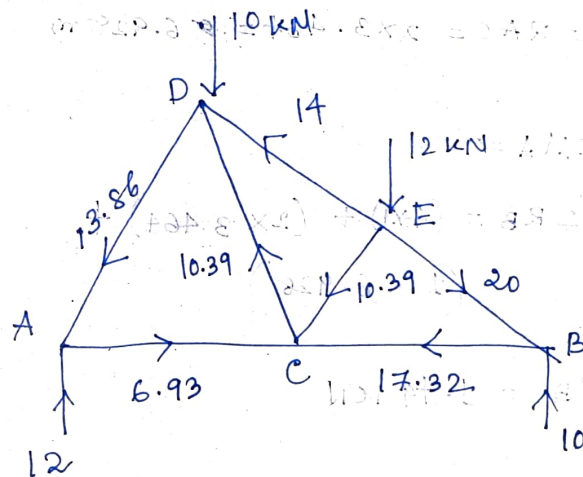 10 KN
D
14
12 KN
E
13.86
10.39
10.39
20
A
B
C
6.93
17.32
12
10